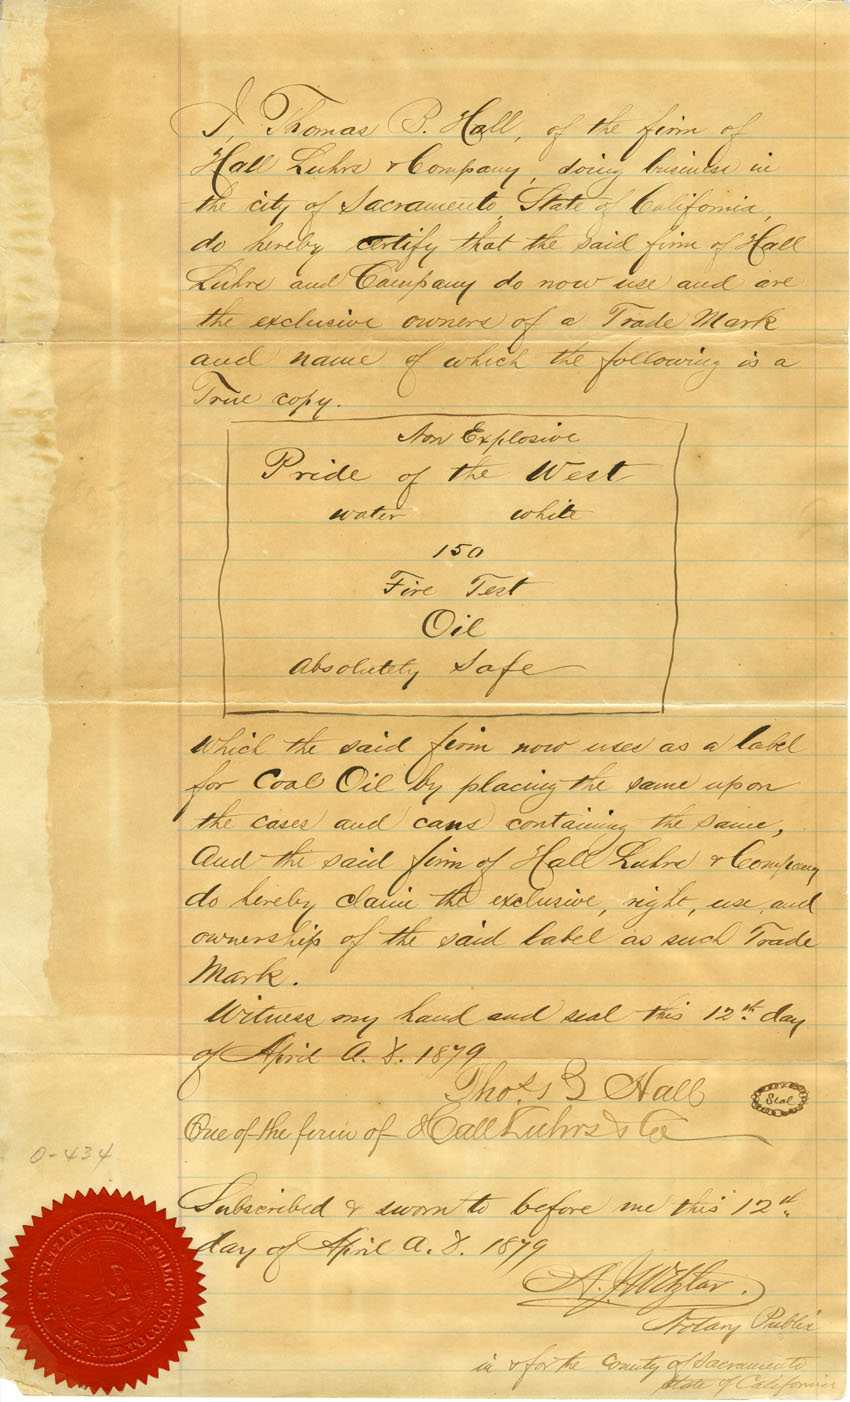 I, Thomas B. Hall, of the firm of
Hall Luhrs & Company, doing business in
the city of Sacramento, State of California,
do hereby certify that the said firm of Hall
Luhrs and Company do now use and are
the exclusive owners of a Trade Mark
and name of which the following is a
True copy.
Non Explosive
Pride of the West
water white
150
Fire Test
Oil
Absolutely Safe
which the said firm now uses as a label
for Coal Oil by placing the same upon
the cases and cans containing the same,
And the said firm of Hall Luhrs & Company
do hereby claim the exclusive, right, use, and
ownership of the said label as such Trade
Mark.
Witness my hand and seal this 12th day
of April A. D. 1879
Thos B Hall
Seal
One of the firm of Hall Luhrs & Co
0-434
Subscribed & sworn to before me this 12th
day of April A. D. 1879
Notary Public
in & for the County of Sacramento
State of California